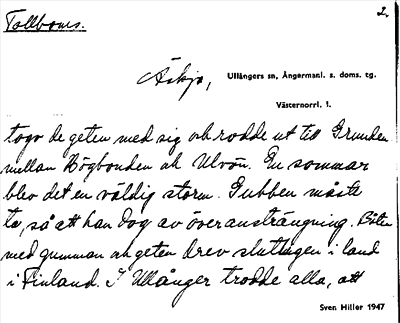 Tollboms.
2.
Askja,
Ullångers sn, Ångermanl. s. doms. tg.
Västernorrl. l.
togo de geten med sig och rodde ut till Grunden
mellan Högbonden och Ulvön. En sommar
blev det en väldig storm. Gubben måste
ta, så att han dog av överansträngning. Båten
med gumman och geten drev slutligen i land
i Finland. I Ullånger trodde alla, att
Sven Hiller 1947